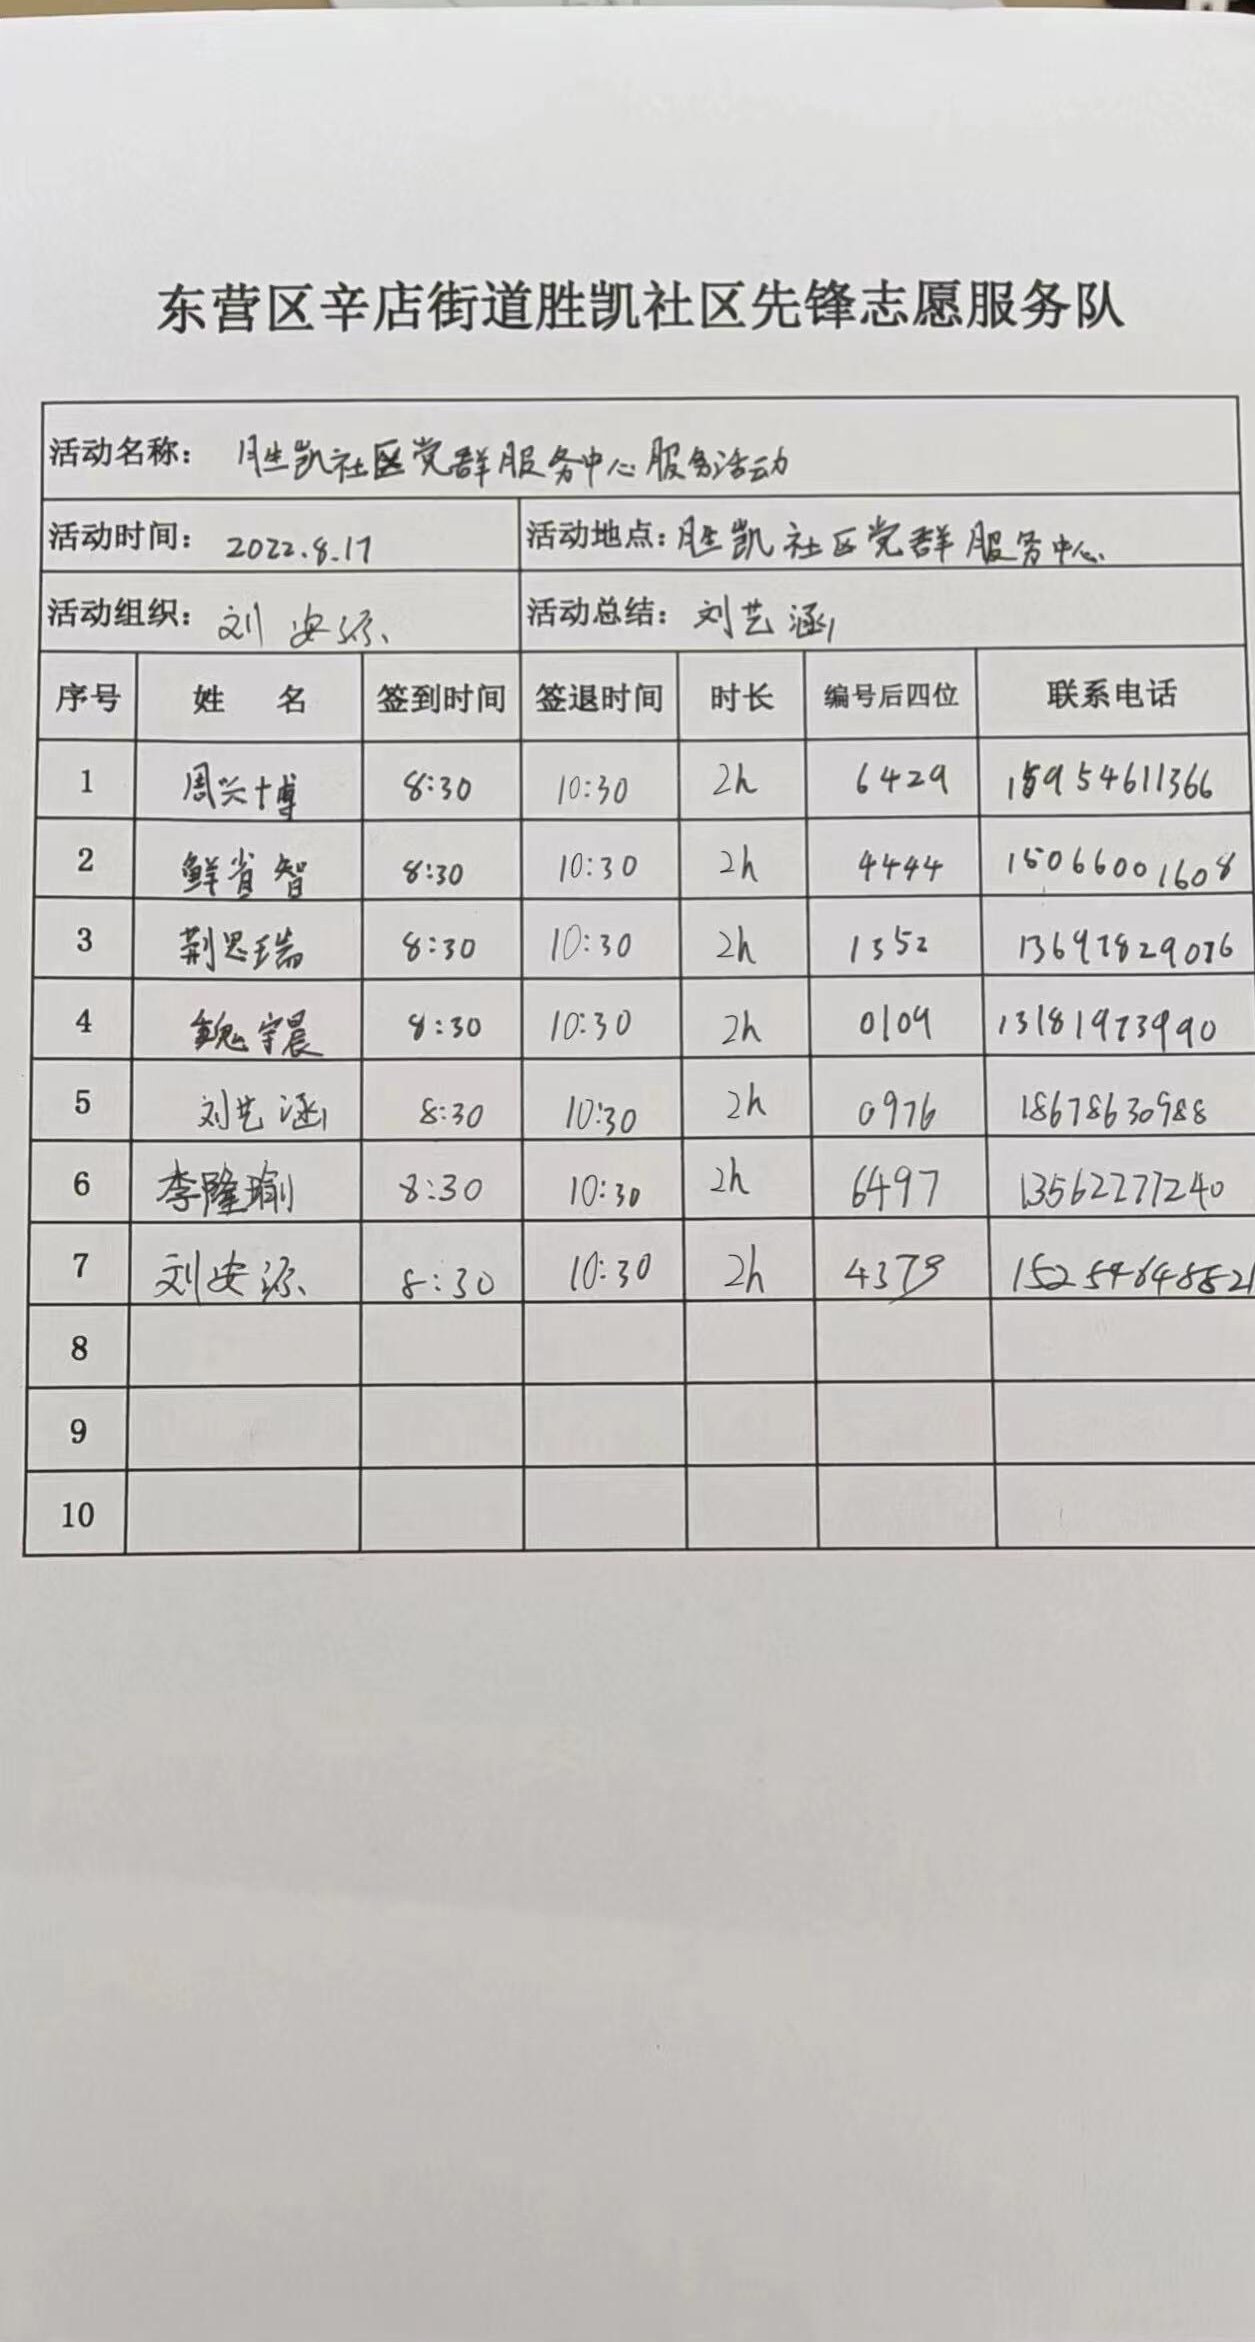 东营区辛店街道胜凯社区先锋志愿服务队
活动名称： 胜凯社区党群服务中心服务活动
活动时间： 2022.8.17 活动地点：胜凯社区党群服务中心
活动组织： 刘安源 活动总结： 刘艺涵
序号 姓 名 签到时间 签退时间 时长 编号后四位 联系电话
1 周兴博 8:30 10:30 2h 6429 15954611366
2 鲜省智 8:30 10:30 2h 4444 15066001608
3 荆思瑞 8:30 10:30 2h 1352 13697829076
4 魏宇晨 8:30 10:30 2h 0109 13181973990
5 刘艺涵 8:30 10:30 2h 0976 18678630988
6 李隆瑜 8:30 10:30 2h 6497 13562277240
7 刘安源 8:30 10:30 2h 4379
8
9
10